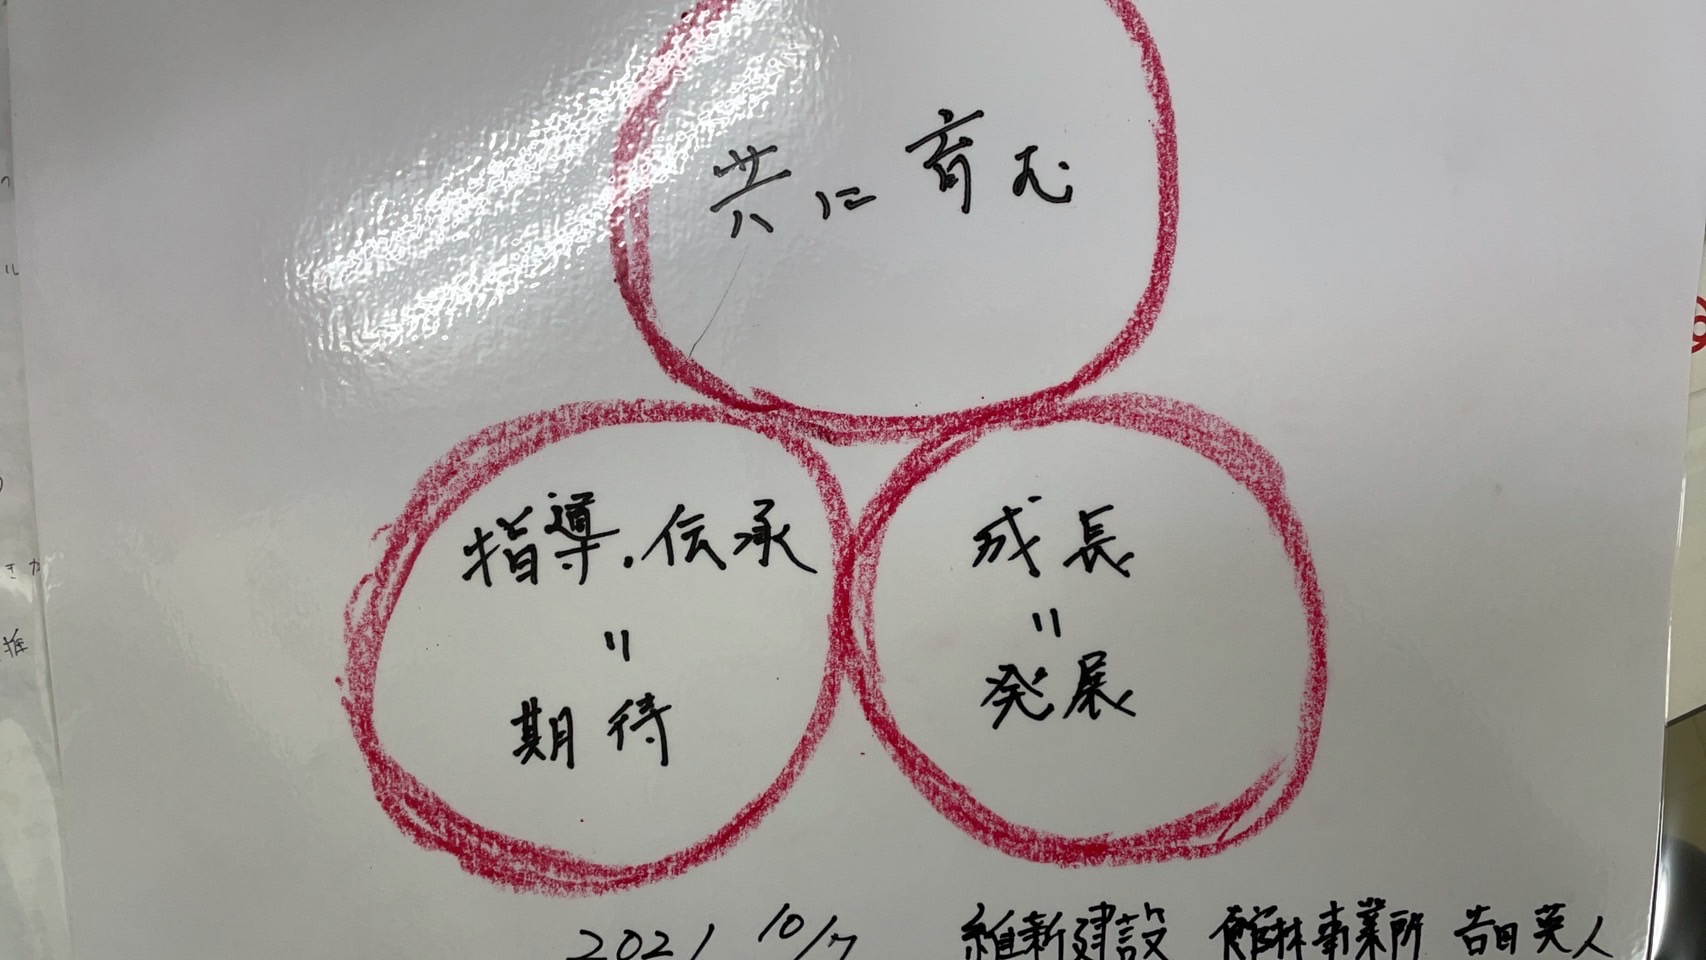 共に育む
指導.伝承
=
期待
成長
=
発展
2021 10/7 維新建設 館林事業所 吉田英人